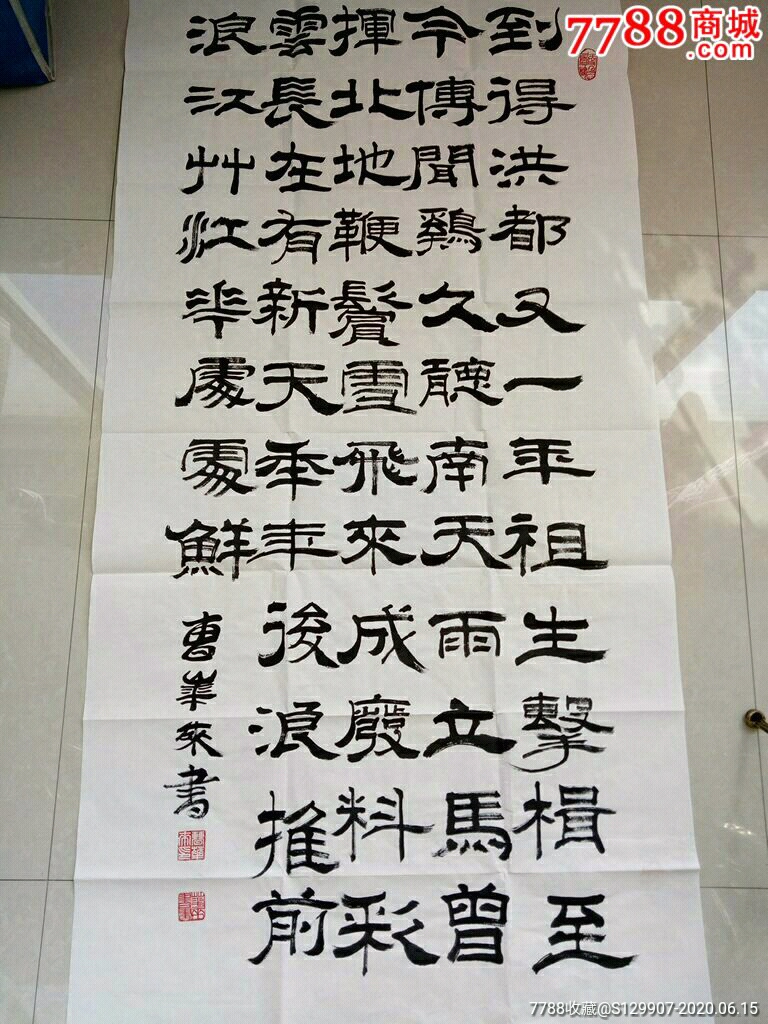 到得洪都又一年祖生擊楫至
今傳聞鷄久聽南天雨立馬曾
揮北地鞭鬢雪飛來成廢料彩
雲長在有新天年年後浪推前
浪江艸江華處處鮮
曹華來書
7788商城
.com
7788收藏@S129907-2020.06.15